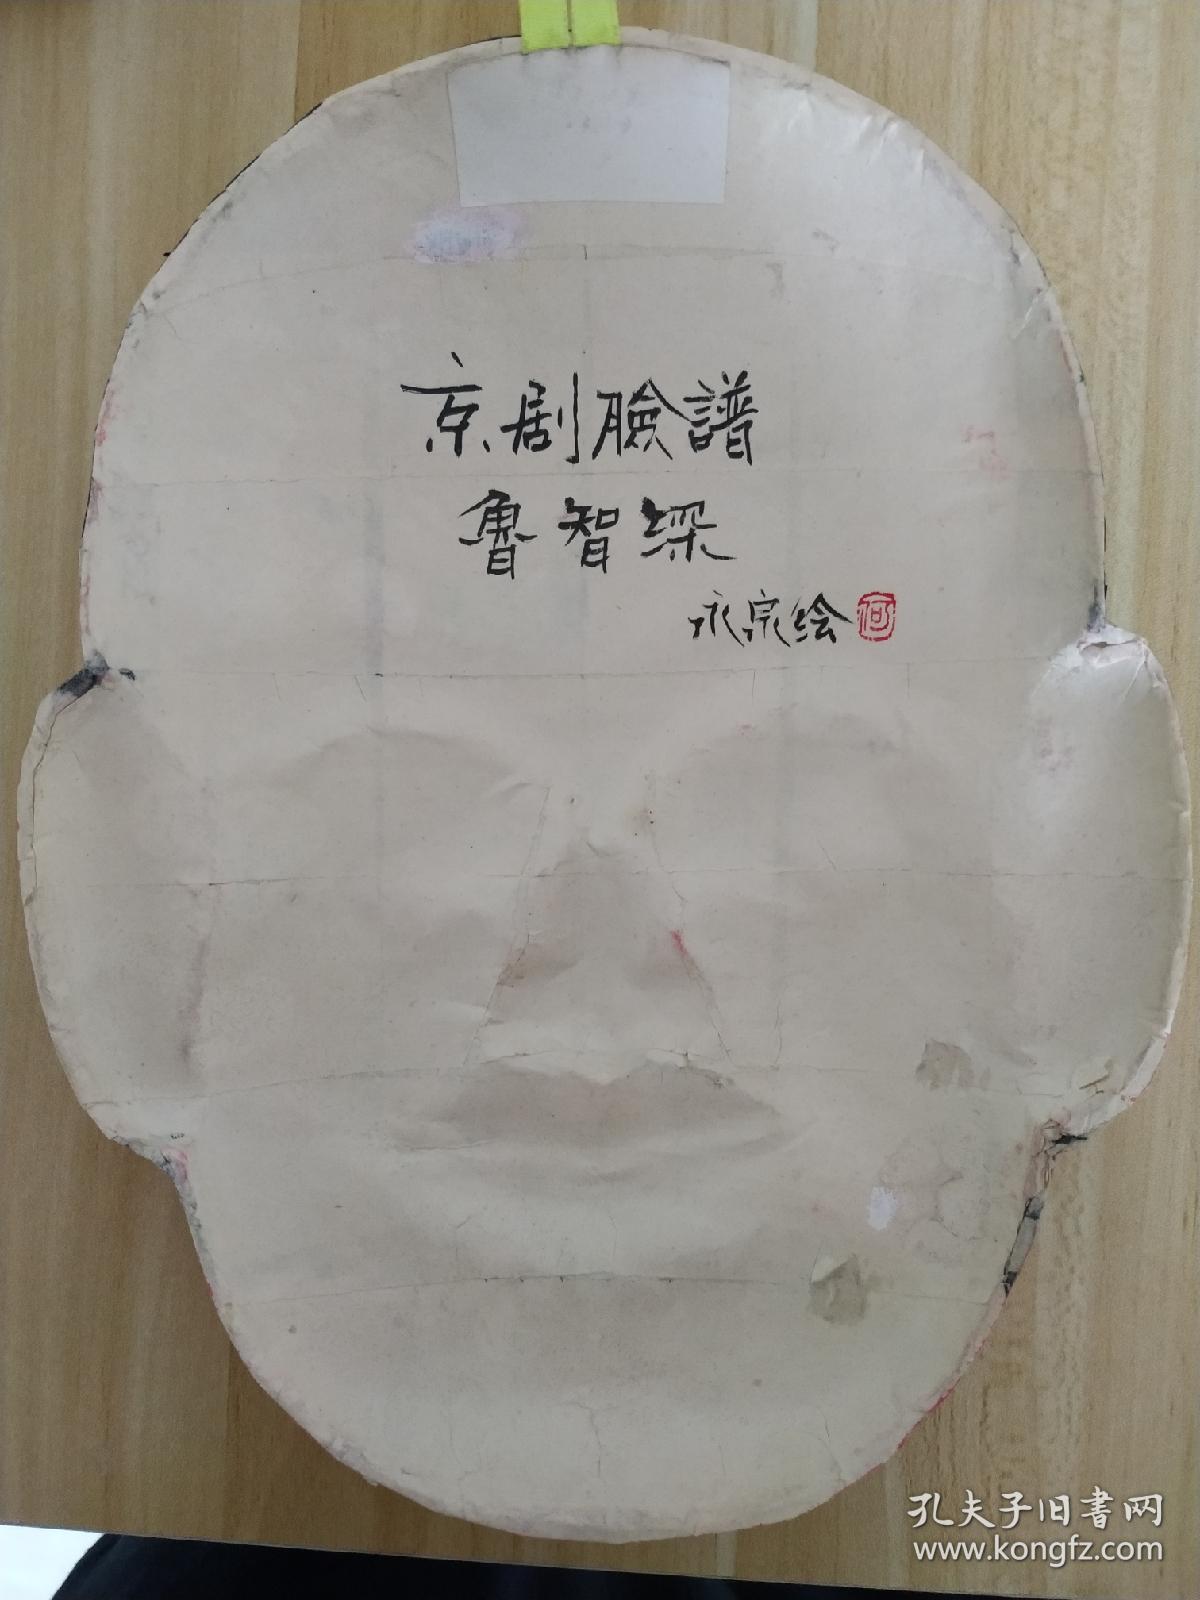 京剧臉譜
魯智深
永宗绘
孔夫子旧書网
www.kongfz.com